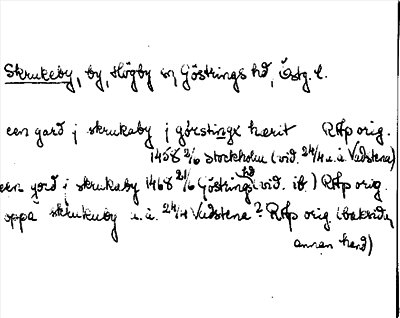 Skrukeby, by, Högby sn, Göstrings hd, Östg. l.
een gard j skrukaby j gørstingx hærit RAp orig.
1458 2/6 Stockholm (vid. 24/4 u.å. Vadstena)
een gord j skrukaby 1468 21/6 Göstrings hd (vid. ib.) RAp orig.
oppa skrukuby u.å. 24/4 Vadstena? RAp orig (baksidan,
annan hand)